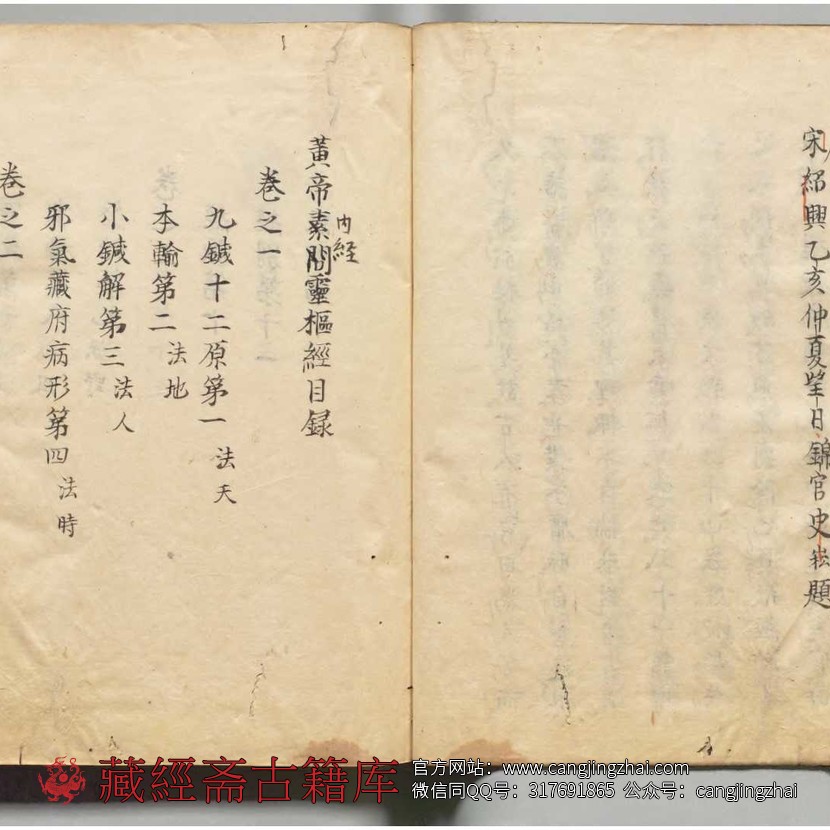 宋紹興乙亥仲夏望日錦官史崧題
黃帝素問靈樞經目録
内経
卷之一
九鍼十二原第一 法天
本輸第二 法地
小鍼解第三 法人
邪氣藏府病形第四 法時
卷之二
藏經斋古籍库
官方网站：www.cangjingzhai.com
微信同QQ号：317691865 公众号：cangjingzhai